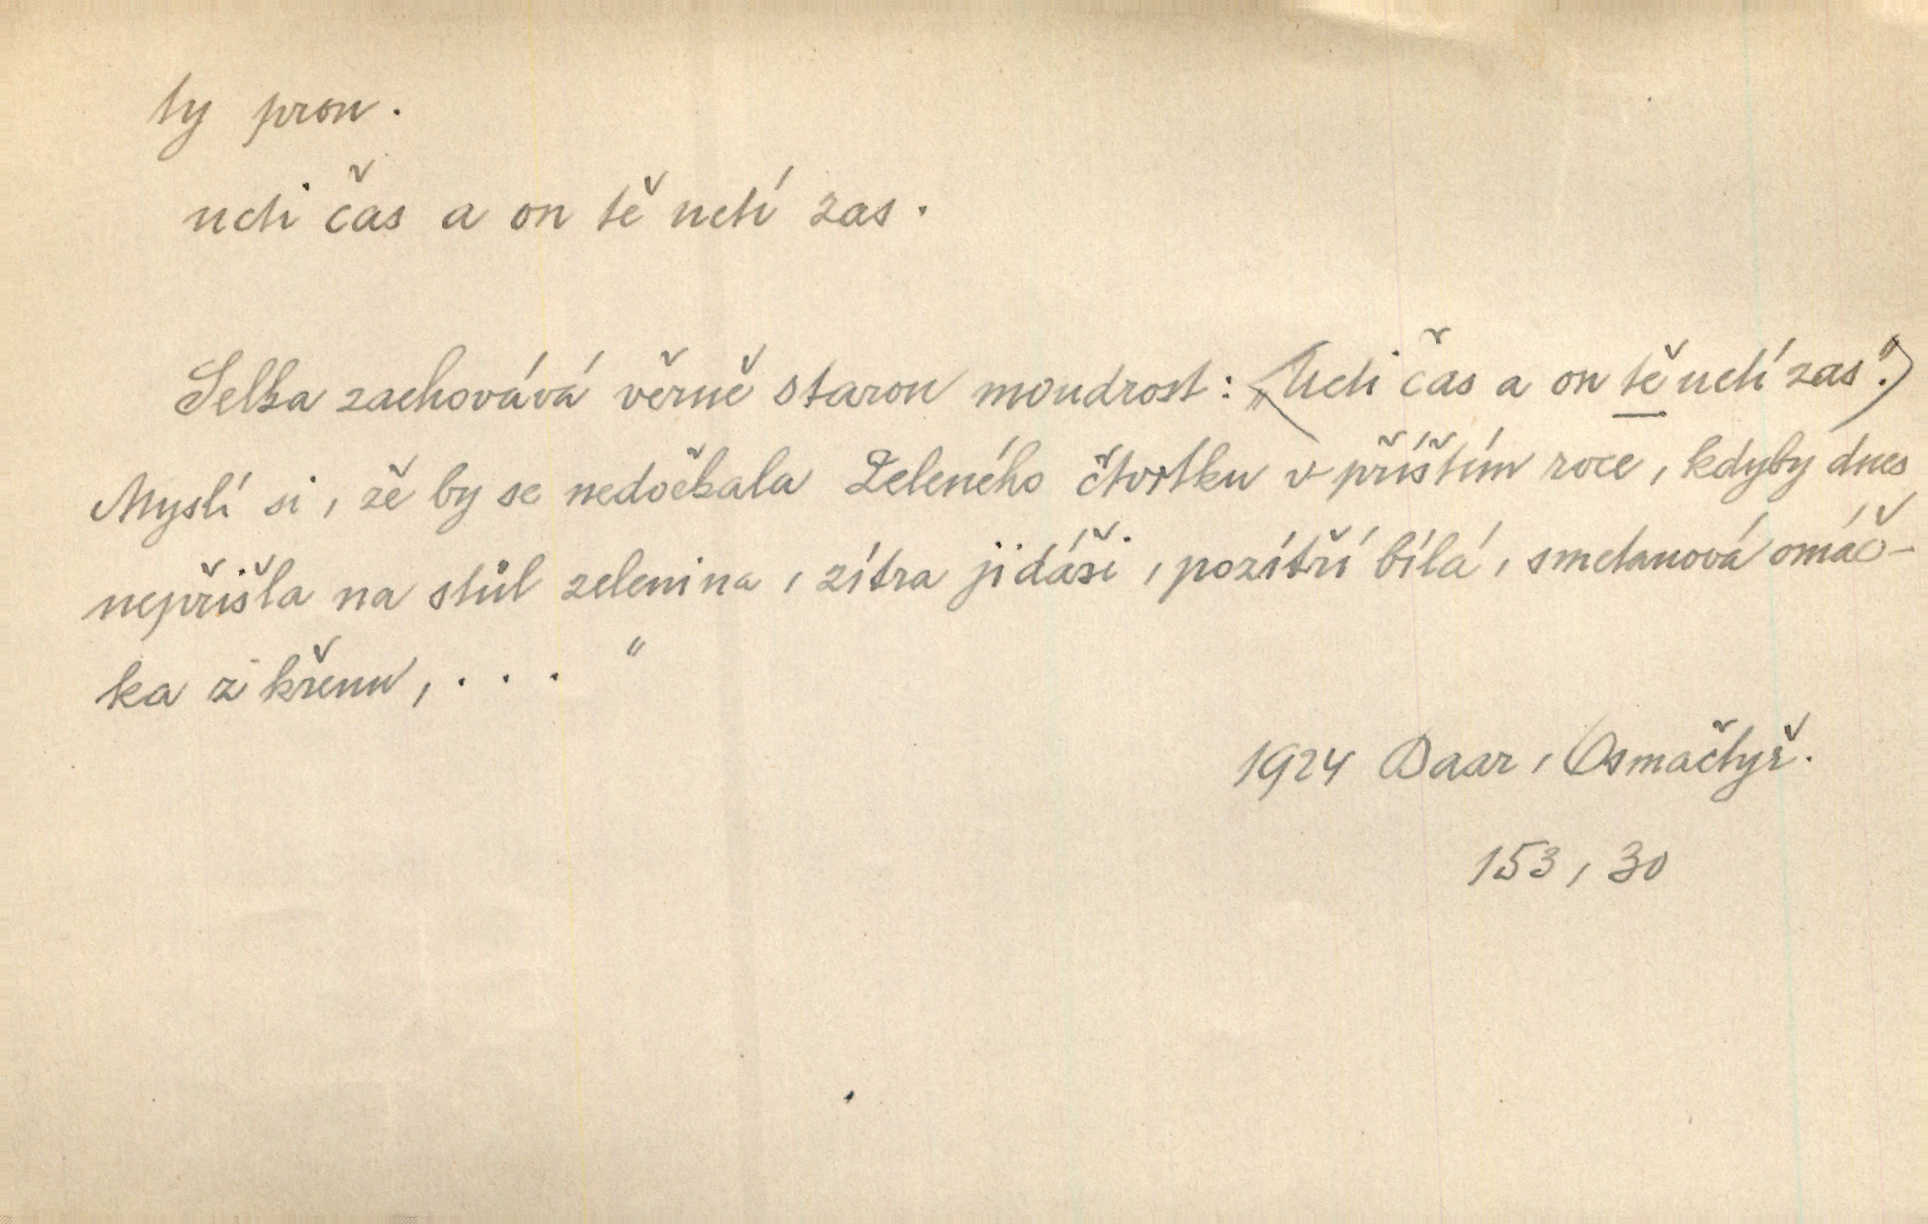 ty pron.
ucti čas a on tě uctí zas.
Selka zachovává věrně starou moudrost: („Ucti čas a on tě uctí zas“.)
Myslí si, že by se nedočkala Zeleného čtvrtku v příštím roce, kdyby dnes
nepřišla na stůl zelenina, zítra jidáši, pozítří bílá, smetanová omáč-
ka z křenu, . . . "
1924 Baar, Osmačtyř.
153, 30